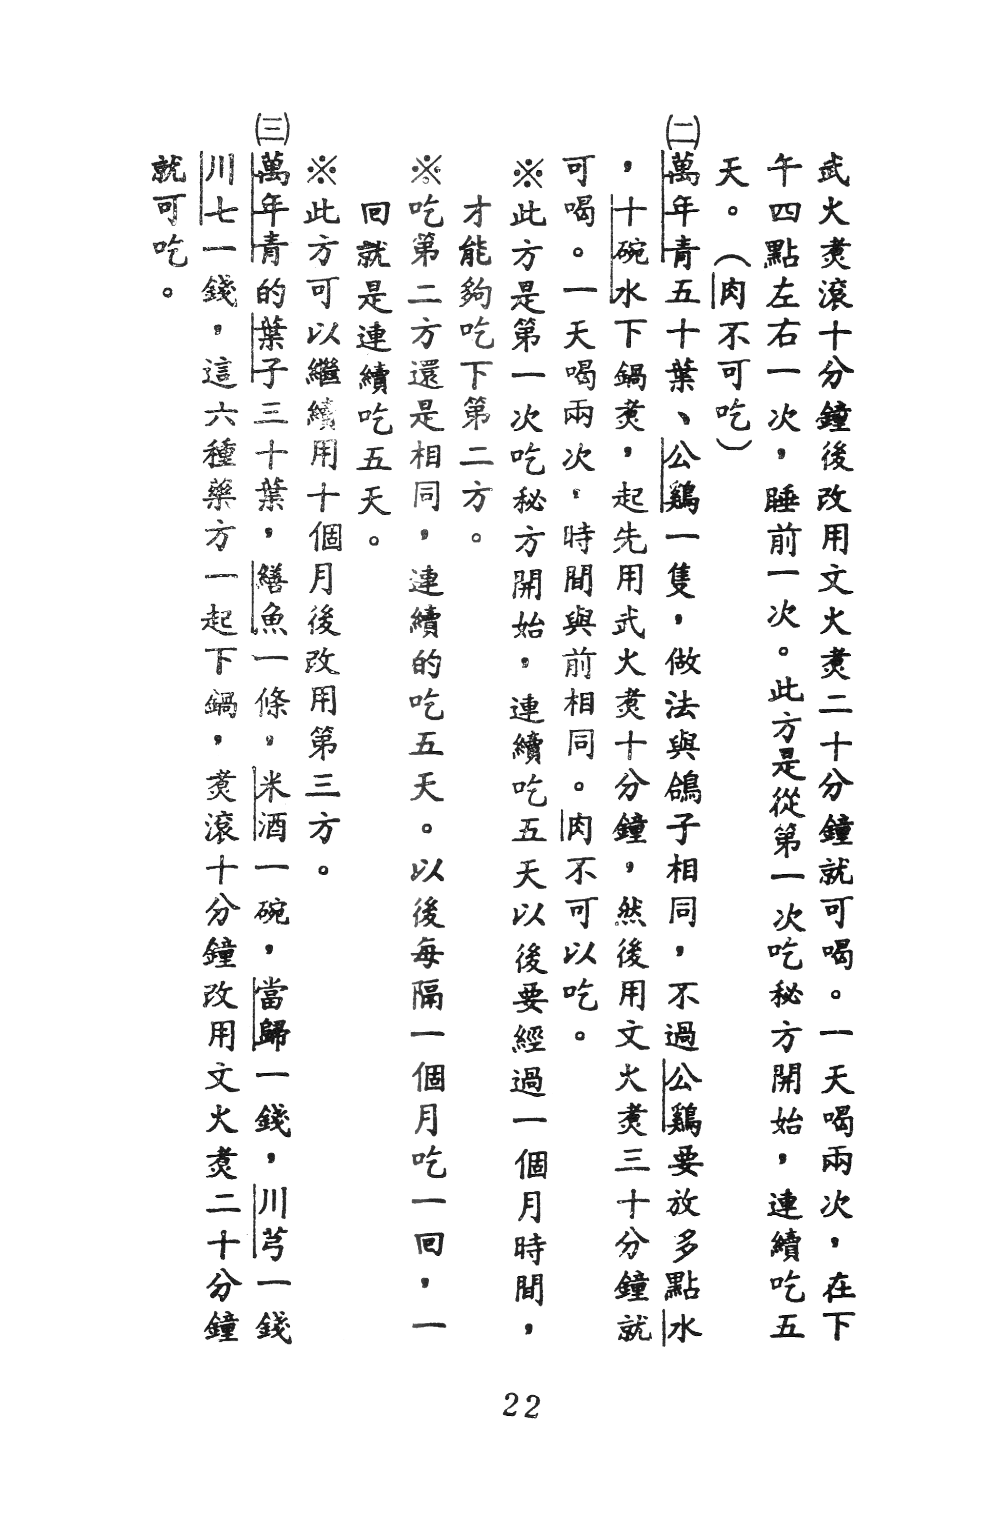 武火煑滾十分鐘後改用文火煑二十分鐘就可喝。一天喝兩次，在下
午四點左右一次，睡前一次。此方是從第一次吃秘方開始，連續吃五
天。（肉不可吃）
㈡萬年青五十葉、公鷄一隻，做法與鴿子相同，不過公鷄要放多點水
，十碗水下鍋煑，起先用武火煑十分鐘，然後用文火煑三十分鐘就
可喝。一天喝兩次，時間與前相同。肉不可以吃。
※此方是第一次吃秘方開始，連續吃五天以後要經過一個月時間，
才能夠吃下第二方。
※吃第二方還是相同，連續的吃五天。以後每隔一個月吃一回，一
回就是連續吃五天。
※此方可以繼續用十個月後改用第三方。
㈢萬年青的葉子三十葉，鱔魚一條，米酒一碗，當歸一錢，川芎一錢
川七一錢，這六種藥方一起下鍋，煑滾十分鐘改用文火煑二十分鐘
就可吃。
22